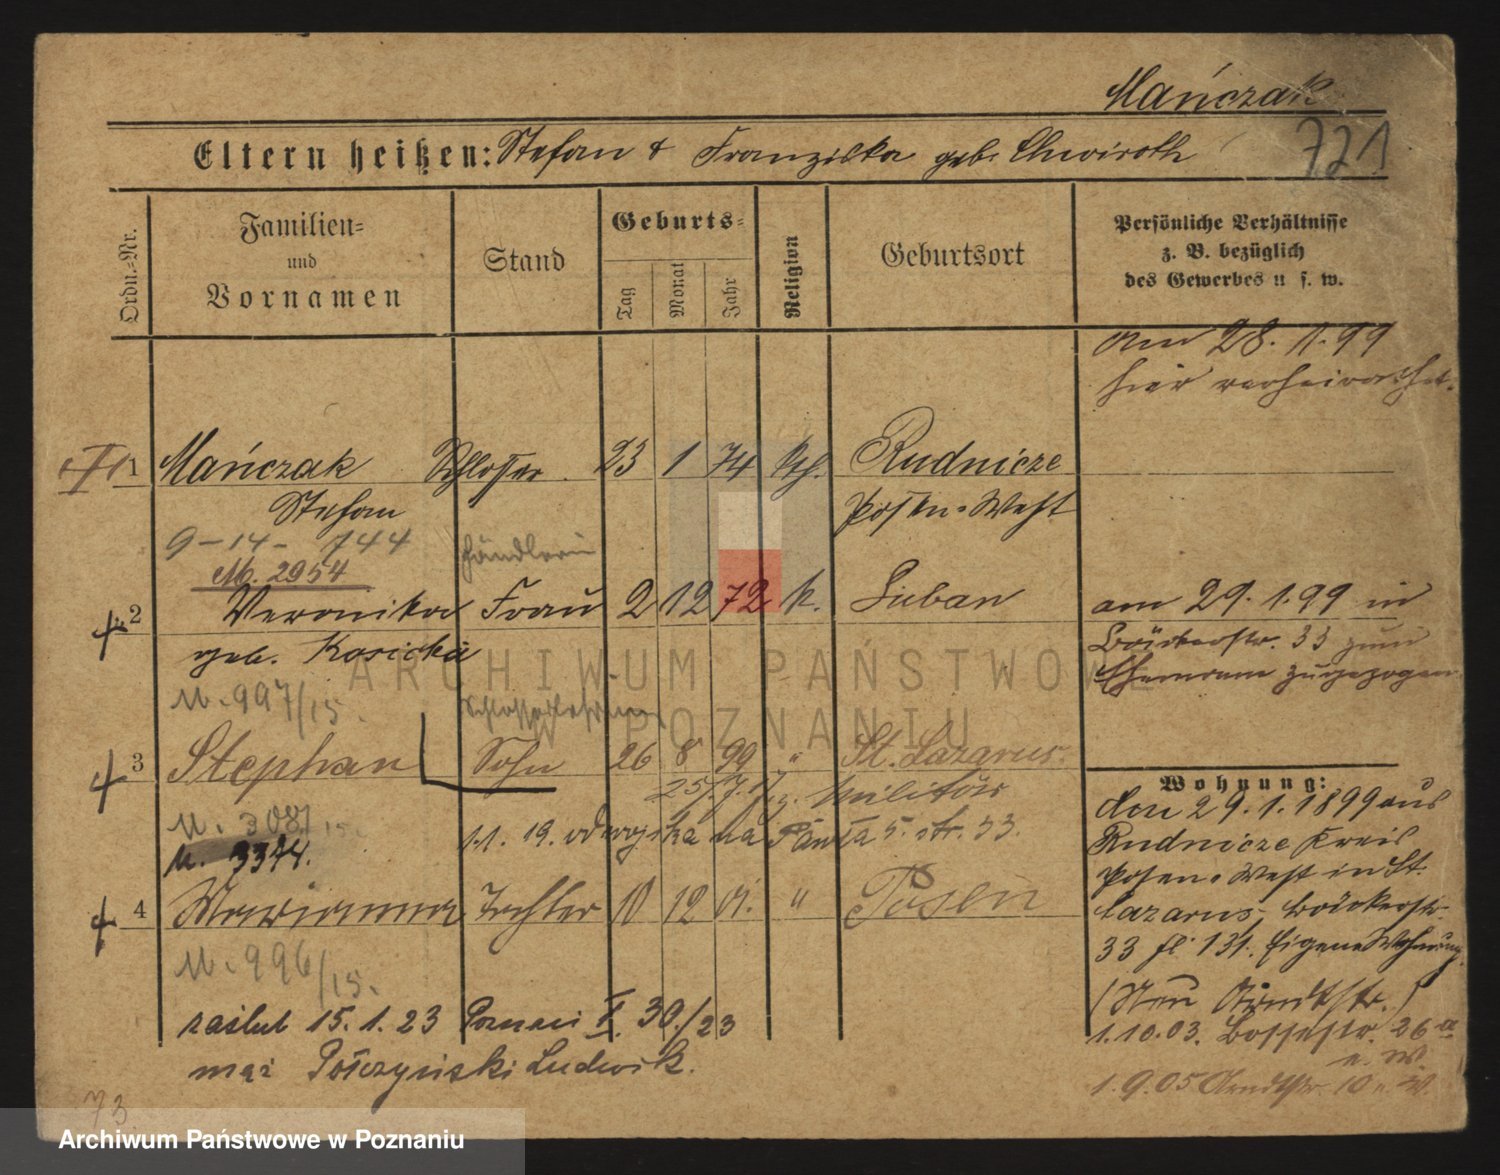 Mańczak
721
Eltern heißen: Stefan & Franziska geb. Chwiroth
Ordn.-Nr.
Familien-
und
Vornamen
Stand
Geburts-
Tag
Monat
Jahr
Religion
Geburtsort
Persönliche Verhältnisse
z. B. bezüglich
des Gewerbes u s. w.
am 28. 1. 99
hier verheirathet.
1 Mańczak Schlosser 23 1 74 kth. Rudnicze
Stefan Posen-West
9-14- 744 Händlerin
M. 2954
2 Veronika Frau 2 12 72 k. Luban
geb. Kosicka
am 29. 1. 99 in
Bäckerstr. 33 zum
Ehemann zugezogen
M. 997/15.
3 Stephan Sohn 26 8 99 " St. Lazarus.
25/7.17 z. Militär
M. 3081 15.
1.1. 19. od wojska na
5. str. 33.
M. 3374.
4 Marianna Tochter 10 12 01. " Posen
M. 996/15.
zaślub 15. 1. 23 Poznań I. 30./23
mąż Połczyński Ludwik.
Wohnung:
den 29. 1. 1899 aus
Rudnicze Kreis
Posen-West in St.
Lazarus, Bäckerstr.
33 fl. 131. Eigene Wohnung
(Neu Arndtstr.)
1. 10. 03. 26 a
n. W.
1. 9. 05 Arndtstr. 10 n. W.
73.
ARCHIWUM PAŃSTWOWE
W POZNANIU
Archiwum Państwowe w Poznaniu